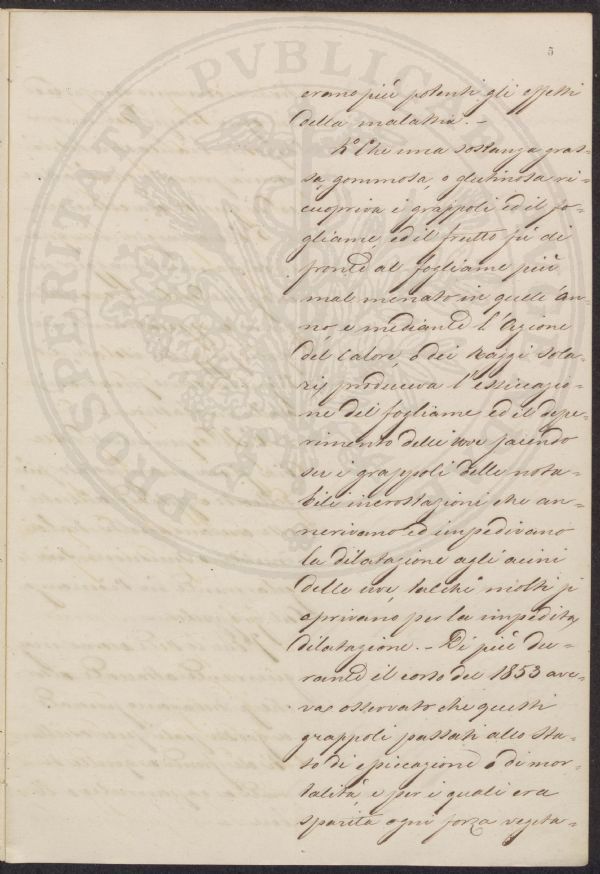 PROSPERITATI PVBLICAE
5
erano più potenti gli effetti
della malattia. –
Che una sostanza gras-
sa, gommosa, o glutinosa ri-
cuopriva i grappoli ed il fo-
gliame, ed il frutto fù di
fronte al fogliame più
mal menato in quell'an-
no, e mediante l'Azione
del Calore, o dei Raggi Sola-
rij produceva l'essiccazio-
ne del fogliame ed il depe-
rimento delle uve facendo
su i grappoli delle nota-
bili incrostazioni che an-
nerivano ed impedivano
la dilatazione agli acini
delle uve, talchè molti si
aprivano per la impedita
dilatazione. – Di più du-
rante il corso del 1853 ave-
va osservato che questi
grappoli passati allo sta-
to di essiccazione o di mor-
talità, e per i quali era
sparita ogni forza vegeta-